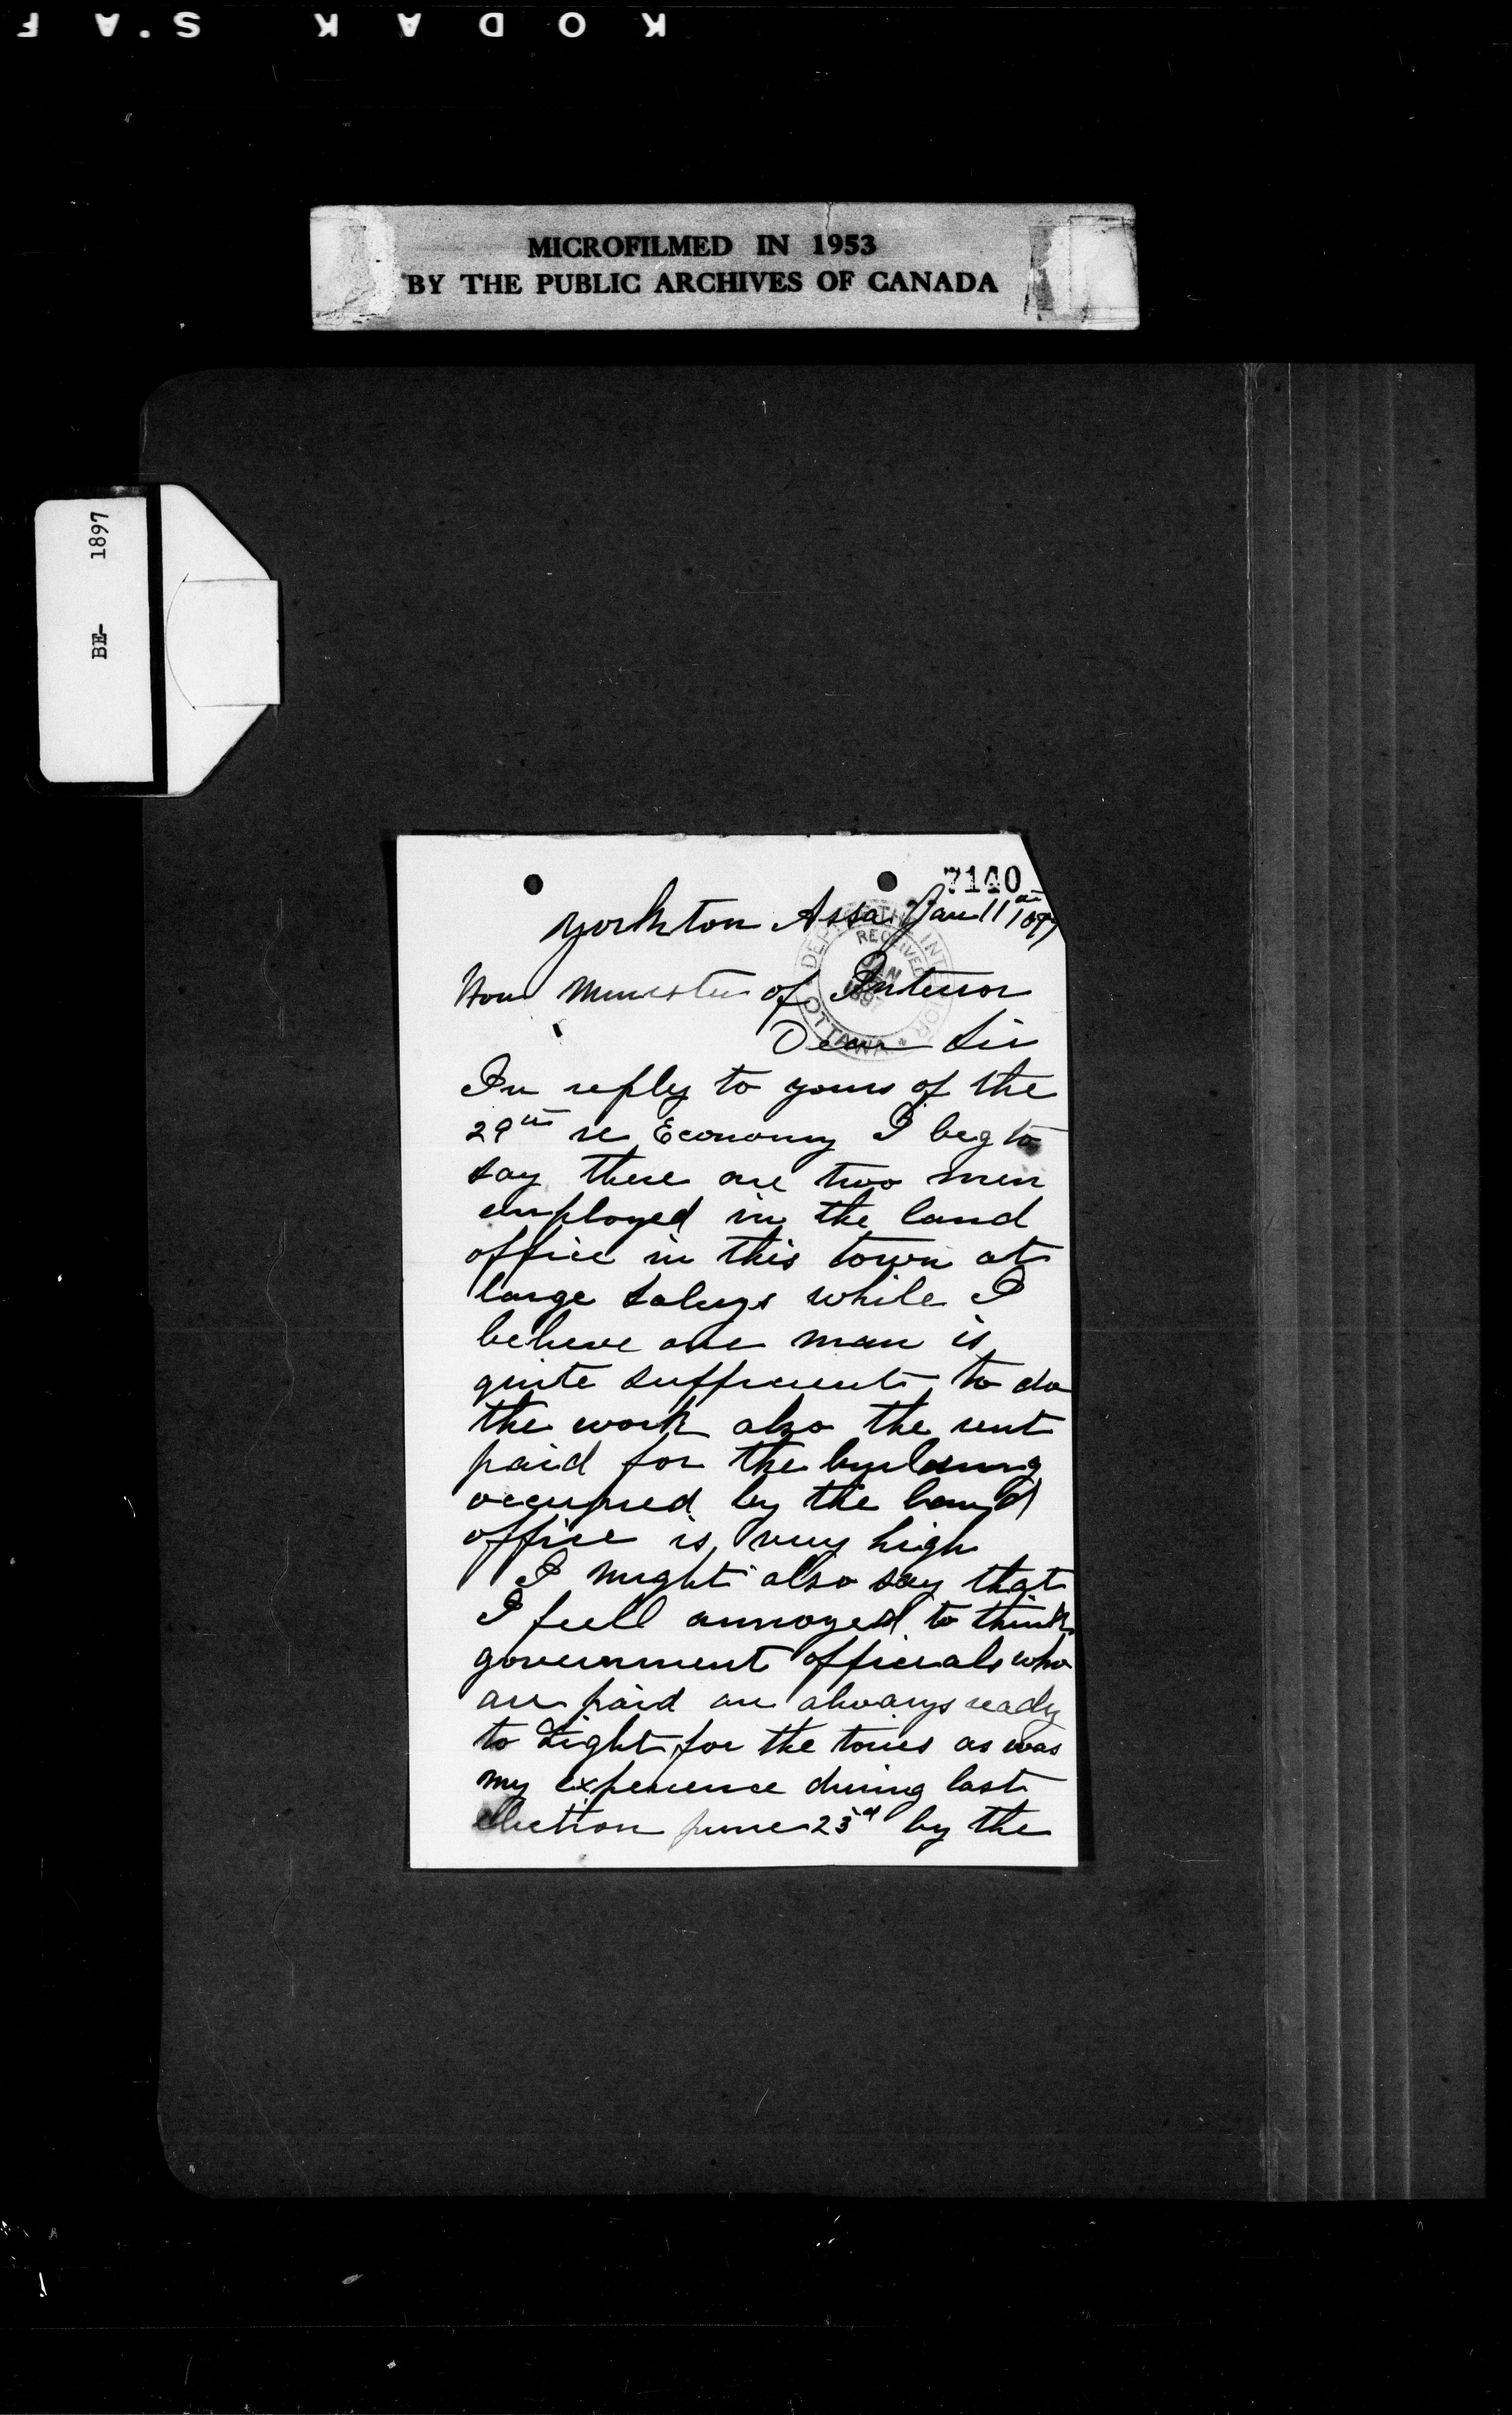 KODAK S.AF
MICROFILMED IN 1953
BY THE PUBLIC ARCHIVES OF CANADA
BE- 1897
7140
Yorkton Assa Jan 11th 1897
DEPT OF THE INTERIOR
RECEIVED
JAN
1897
OTTAWA
Hon Minister of Interior
Dear Sir
In reply to yours of the
29th re Economy I beg to
say there are two men
employed in the land
office in this town at
large salerys while I
believe one man is
quite sufficient to do
the work also the rent
paid for the building
occupied by the land
office is very high
I might also say that
I feell annoyed to think
government officials who
are paid are always ready
to Fight for the tories as was
my experience during last
election June 23rd by the